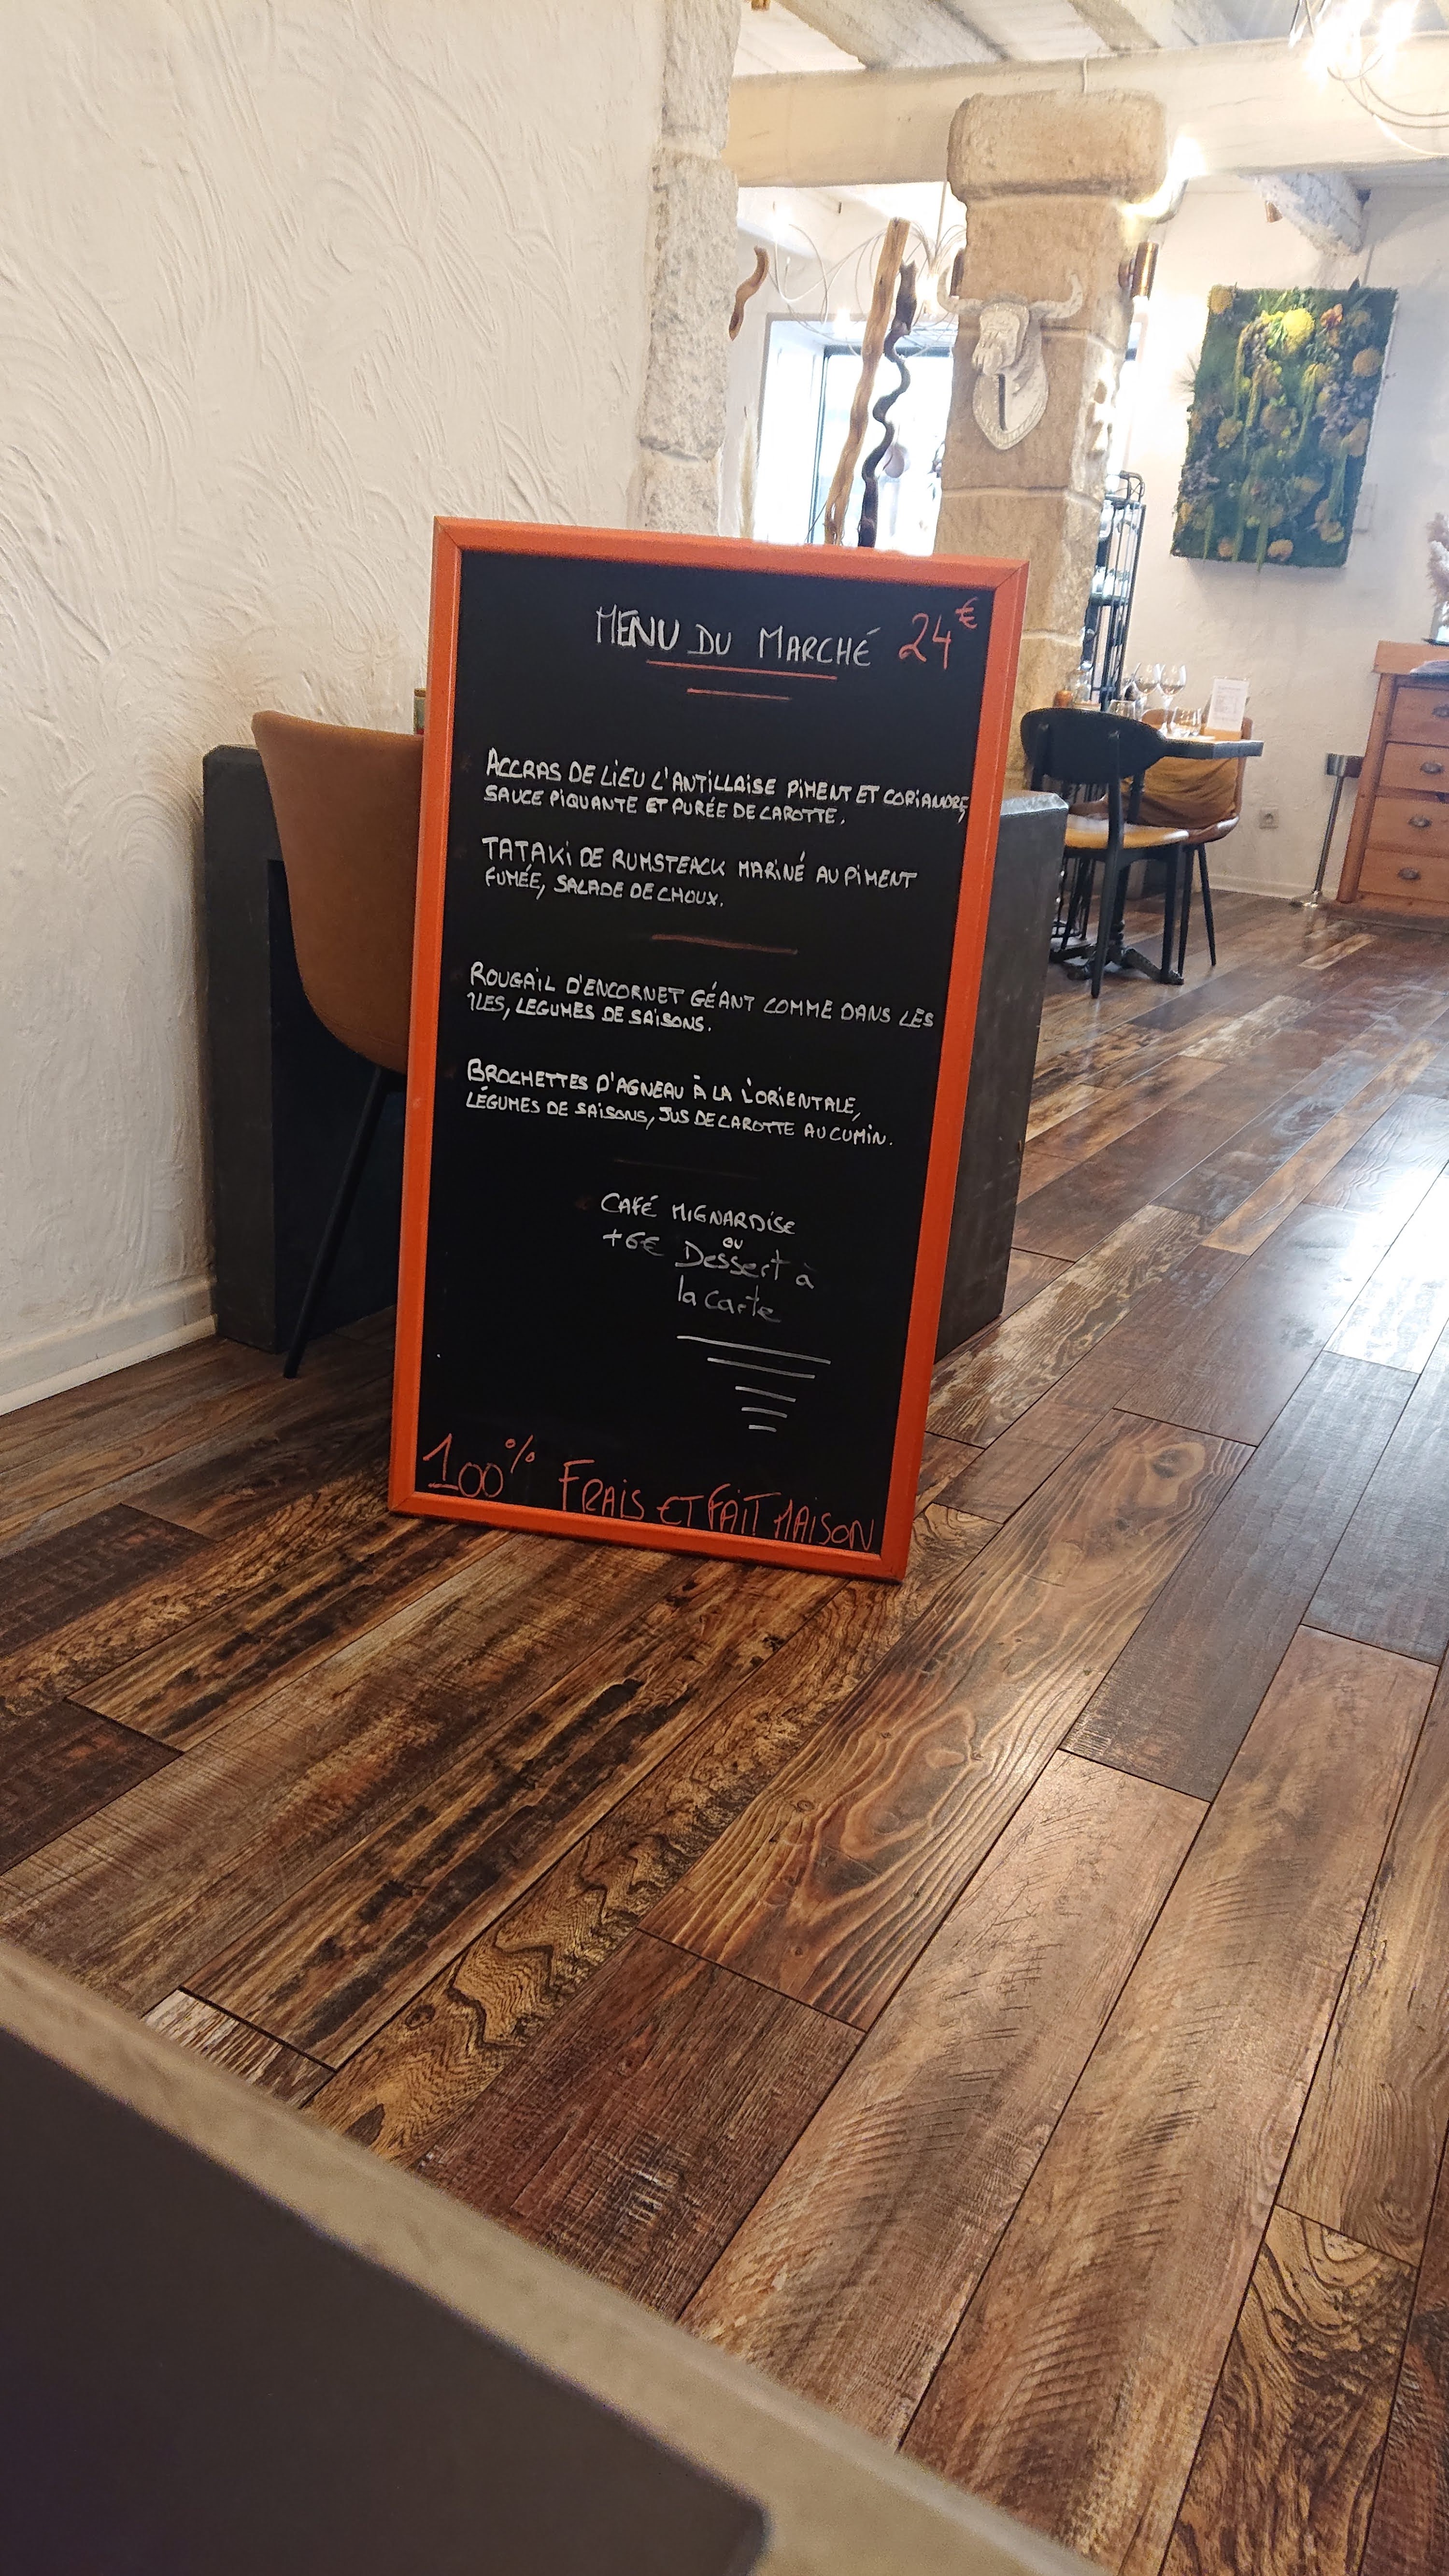 MENU DU MARCHÉ 24€
ACCRAS DE LIEU L'ANTILLAISE PIMENT ET CORIANDRE,
SAUCE PIQUANTE ET PURÉE DE CAROTTE.
TATAKI DE RUMSTEACK MARINÉ AU PIMENT
FUMÉE, SALADE DE CHOUX.
ROUGAIL D'ENCORNET GÉANT COMME DANS LES
ÎLES, LEGUMES DE SAISONS.
BROCHETTES D'AGNEAU À LA L'ORIENTALE,
LÉGUMES DE SAISONS, JUS DE CAROTTE AU CUMIN.
CAFÉ MIGNARDISE
OU
+6€ Dessert à
la carte
100% FRAIS ET FAIT MAISON